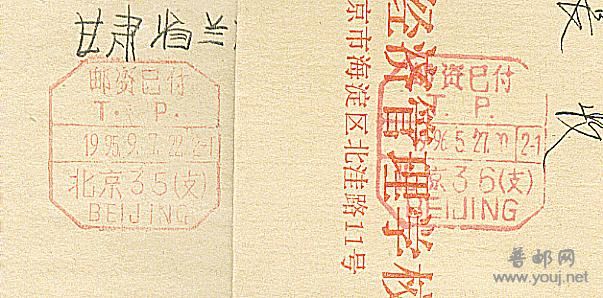 甘肃省兰
邮资已付
T. P.
1995.9. 22 2-1
北京35(支)
BEIJING
经济管理学校
京市海淀区北洼路11号
邮资已付
T. P.
1996.5.27. 2-1
京36(支)
BEIJING
收
普邮网
www.youj.net